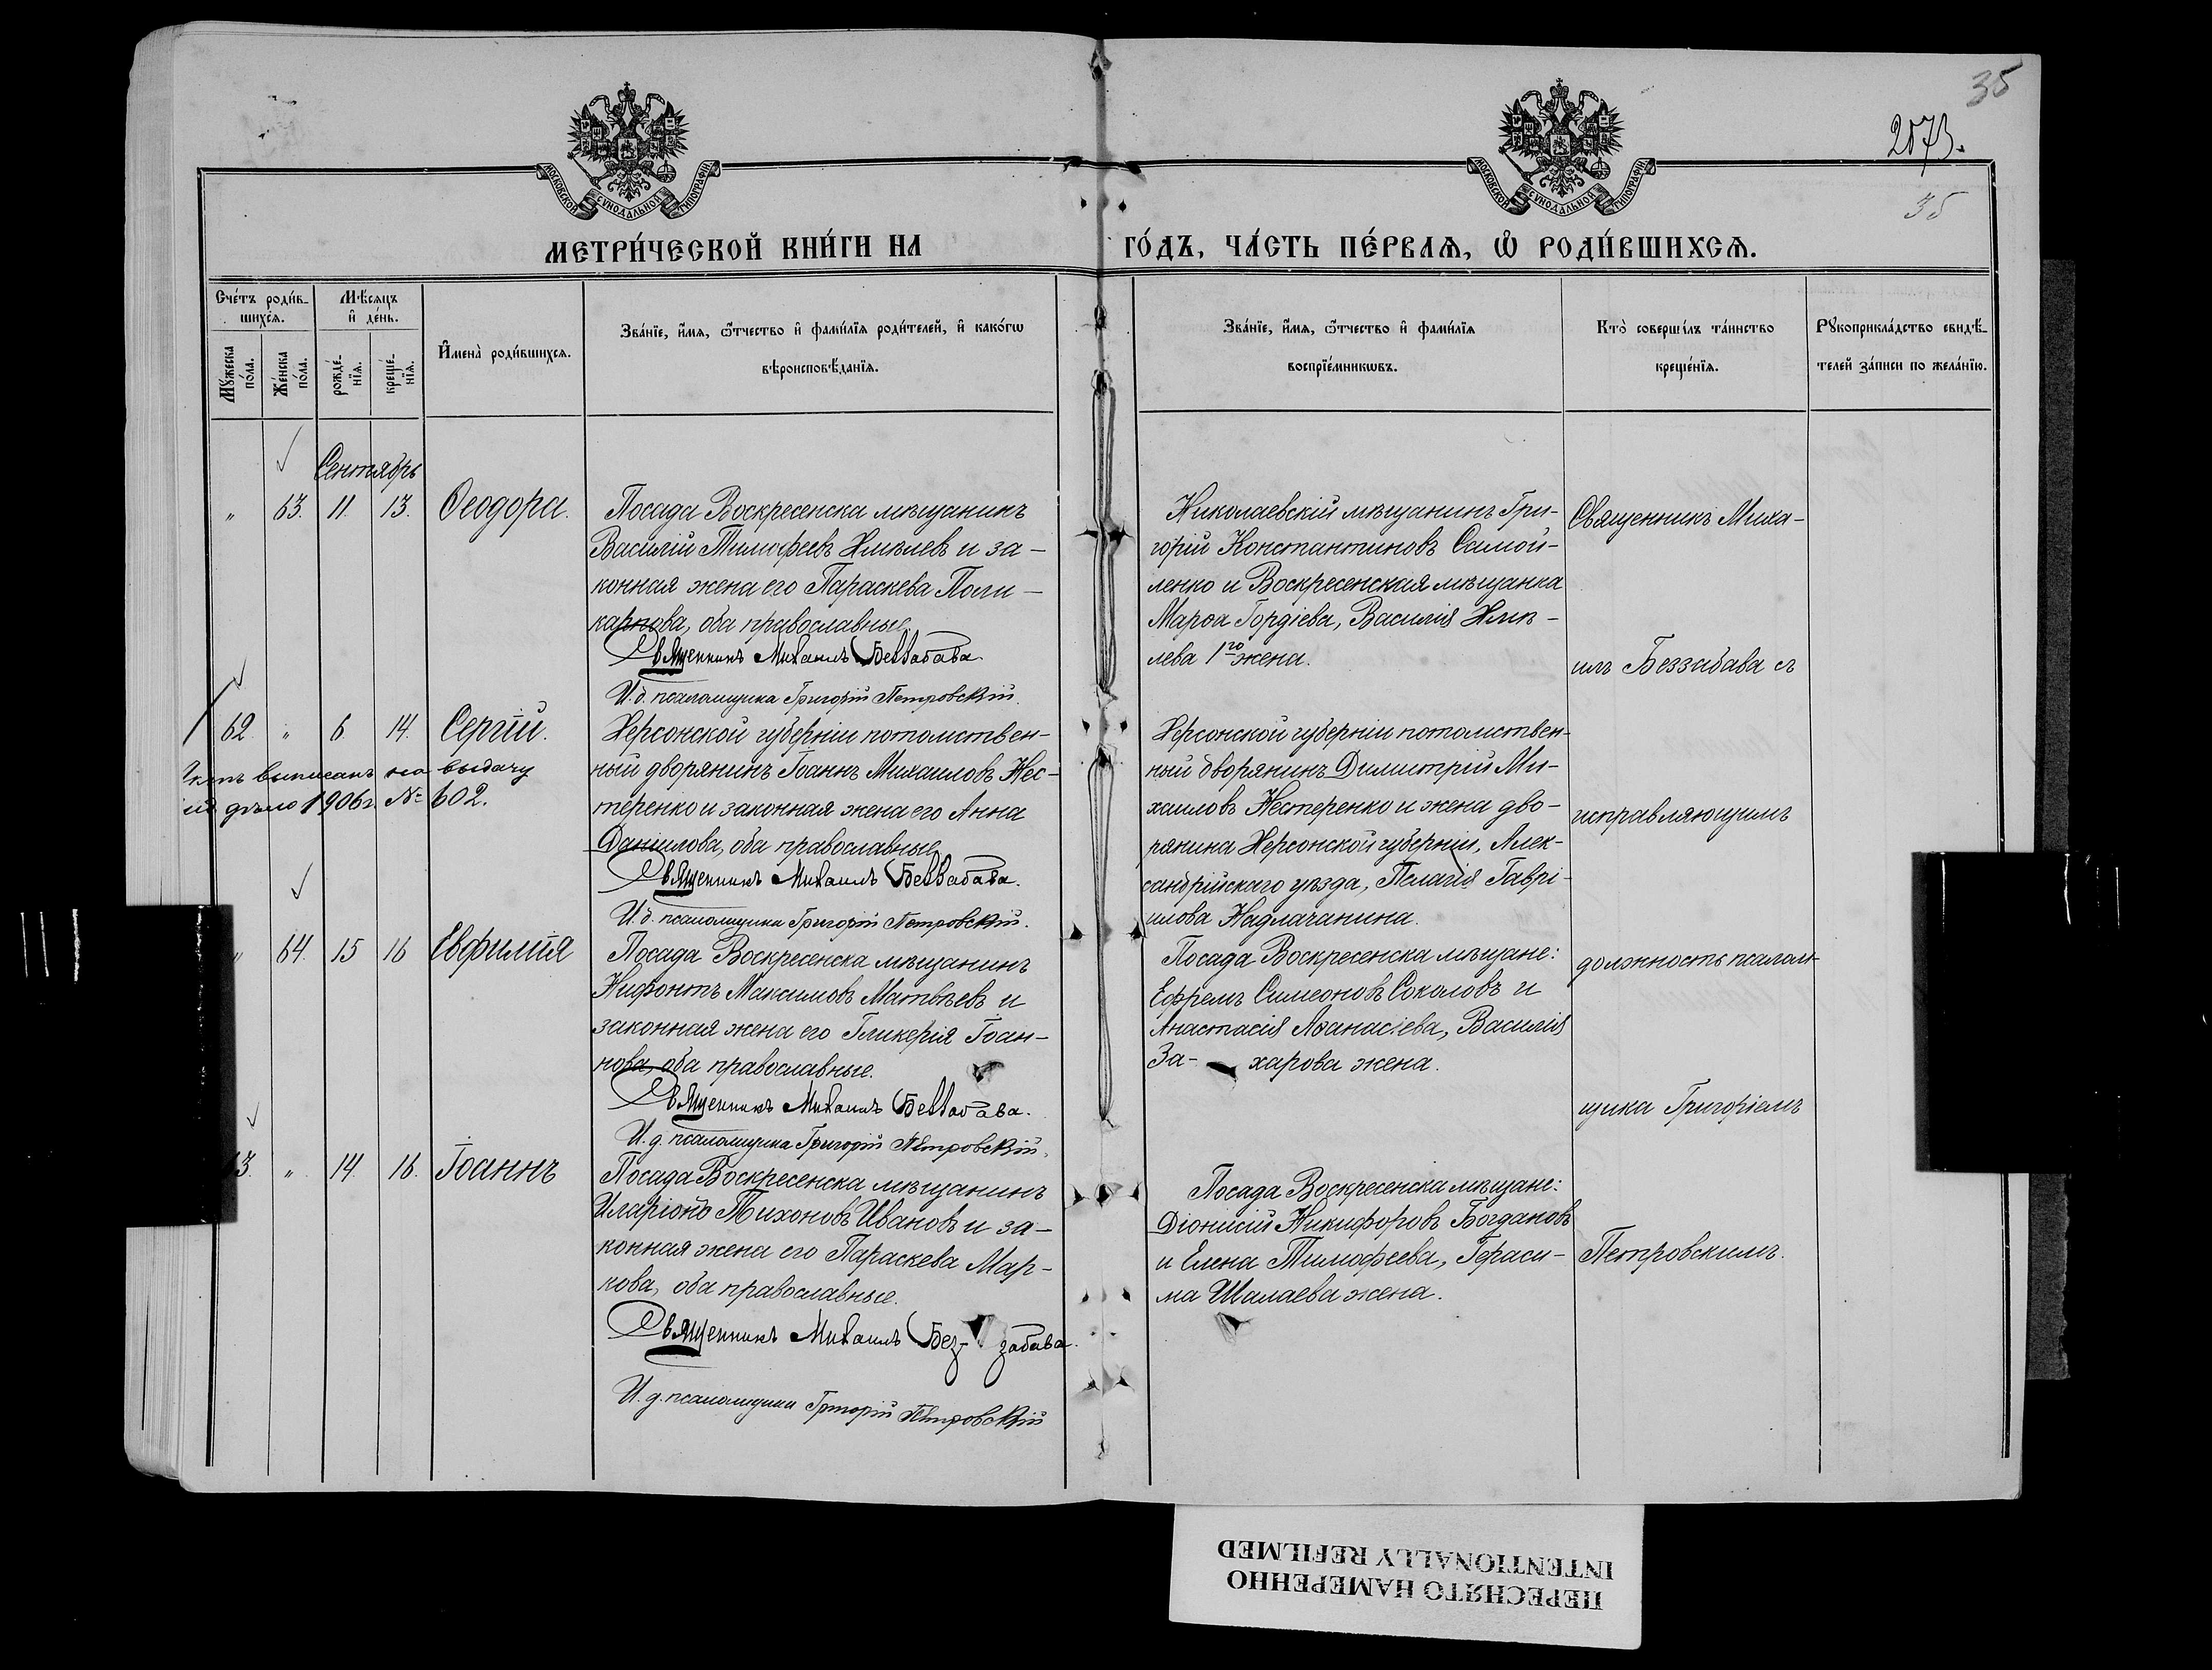 35
2073.
35
МОСКОВСКОЙ СѴНОДАЛЬНОЙ ТИПОГРАФІИ
МОСКОВСКОЙ СѴНОДАЛЬНОЙ ТИПОГРАФІИ
МЕТРИ́ЧЕСКОЙ КНИ́ГИ НА
ГО́ДЪ, ЧА́СТЬ ПЕ́РВАѦ, Ѡ҆ РОДИ́ВШИХСѦ.
Сче́тъ роди́в-
шихсѧ.
Мѣ́сѧцъ
и҆ де́нь.
Мꙋ́жеска
по́ла.
Же́нска
по́ла.
рожде́-
нїѧ.
креще́-
нїѧ.
И҆мена̀ роди́вшихсѧ.
Зва́нїе, и҆́мѧ, ѻ҆́тчество и҆ фами́лїѧ роди́телей, и҆ како́гѡ
вѣроисповѣ́данїѧ.
Зва́нїе, и҆́мѧ, ѻ҆́тчество и҆ фами́лїѧ
воспрїе́мникѡвъ.
Кто̀ соверши́лъ та́инство
креще́нїѧ.
Рꙋкоприкла́дство свидѣ́-
телей за́писи по жела́нїю.
Сентябрь
" 63. 11. 13. Ѳеодора.
Посада Воскресенска мѣщанинъ
Василій Тимофеевъ Хмѣлев и за-
конная жена его Параскева Поли-
карпова, оба православные.
Священникъ Михаилъ Беззабава.
И. д. псаломщика Григорій Петровскій.
Николаевскій мѣщанинъ Гри-
горій Константиновъ Самой-
ленко и Воскресенская мѣщанка
Марѳа Гордіева, Василія Хмѣ-
лева 1го жена.
Священникъ Миха-
илъ Беззабава съ
62. " 6 14. Сергій.
выписанъ на выдачу
дѣло 1906 г. № 602.
Херсонской губерніи потомствен-
ный дворянинъ Іоаннъ Михаиловъ Нес-
теренко и законная жена его Анна
Даніилова, оба православные.
Священникъ Михаилъ Беззабава.
И. д. псаломщика Григорій Петровскій.
Херсонской губерніи потомствен-
ный дворянинъ Димитрій Ми-
хаиловъ Нестеренко и жена дво-
рянина Херсонской губерніи, Алек-
сандрійскаго уѣзда, Пелагія Гаврі-
илова Надлачанина.
исправляющимъ
" 64. 15 16 Евфимія
Посада Воскресенска мѣщанинъ
Нифонтъ Максимовъ Матвѣевъ и
законная жена его Гликерія Іоан-
нова, оба православные.
Священникъ Михаилъ Беззабава.
И. д. псаломщика Григорій Петровскій.
Посада Воскресенска мѣщане:
Ефремъ Симеоновъ Соколовъ и
Анастасія Аѳанасіева, Василія
За- харова жена.
должность псалом-
щика Григоріемъ
3. " 14. 16. Іоаннъ
Посада Воскресенска мѣщанинъ
Иларіонъ Тихоновъ Ивановъ и за-
конная жена его Параскева Мар-
кова, оба православные.
Священникъ Михаилъ Без- забава.
И. д. псаломщика Григорій Петровскій
Посада Воскресенска мѣщане:
Діонисій Никифоровъ Богдановъ
и Елена Тимофеева, Гераси-
ма Шалаева жена.
Петровскимъ.
ПЕРЕСНЯТО НАМЕРЕННО
INTENTIONALLY REFILMED